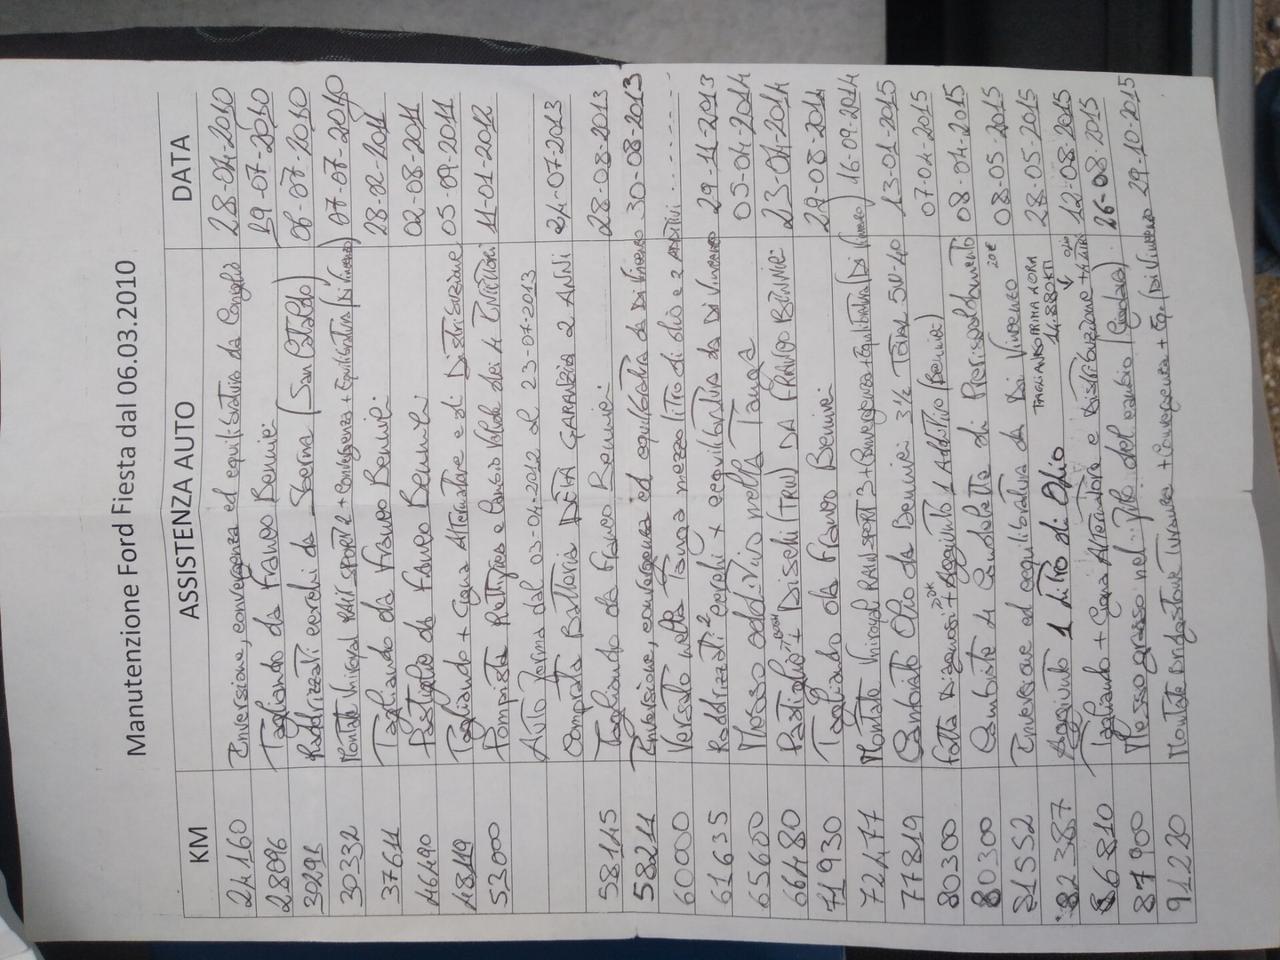 Manutenzione Ford Fiesta dal 06.03.2010
KM ASSISTENZA AUTO DATA
24160 Inversione, convergenza ed equilibratura da Coniglio 28-04-2010
28096 Tagliando da Franco Bennici 19-07-2010
30291 Raddrizzati cerchi da (San Cataldo) 06-07-2010
30332 Montate Uniroyal RAIN SPORT 2 + Convergenza + Equilibratura (Di Vincenzo) 07-07-2010
37611 Tagliando da Franco Bennici 28-02-2011
46490 Pastiglie da Franco Bennici 02-08-2011
48119 Tagliando + Cigna Alternatore e di Distribuzione 05-09-2011
53000 Pompista Rettifica e Cambio Valvole dei 4 INIETTORI 11-01-2012
Auto ferma dal 03-04-2012 al 23-07-2013
Comprata Batteria DETA GARANZIA 2 ANNI 24-07-2013
58145 Tagliando da Franco Bennici 28-08-2013
58211 Inversione, convergenza ed equilibratura da Di Vincenzo 30-08-2013
60000 Versato nella Tanga mezzo litro di olio e 2 ADDITIVI
61635 Raddrizzati 2 cerchi + equilibratura da Di Vincenzo 29-11-2013
65600 Messo additivo nella Tanga 05-04-2014
66480 Pastiglie + Dischi (TRW) DA FRANCO BENNICI 23-04-2014
71930 Tagliando da Franco Bennici 29-08-2014
72477 Montate Uniroyal RAIN SPORT 3 + Convergenza + Equilibratura (Di Vincenzo) 16-09-2014
77819 Cambiato Olio da Bennici 3½ Total 5W-40 13-01-2015
80300 Fatta Diagnosi + Aggiunto 1 Additivo (Bennici) 07-04-2015
80300 Cambiate 4 Candelette di Preriscaldamento 08-04-2015
81552 Inversione ed equilibratura da Di Vincenzo 20€ 08-05-2015
82387 Aggiunto 1 Litro di Olio 28-05-2015
86810 Tagliando + Cigna Alternatore e Distribuzione 12-08-2015
87900 Messo grasso nel del cambio 26-08-2015
91220 Montate Bridgestone Turanza + Convergenza + Eq. (Di Vincenzo) 29-10-2015